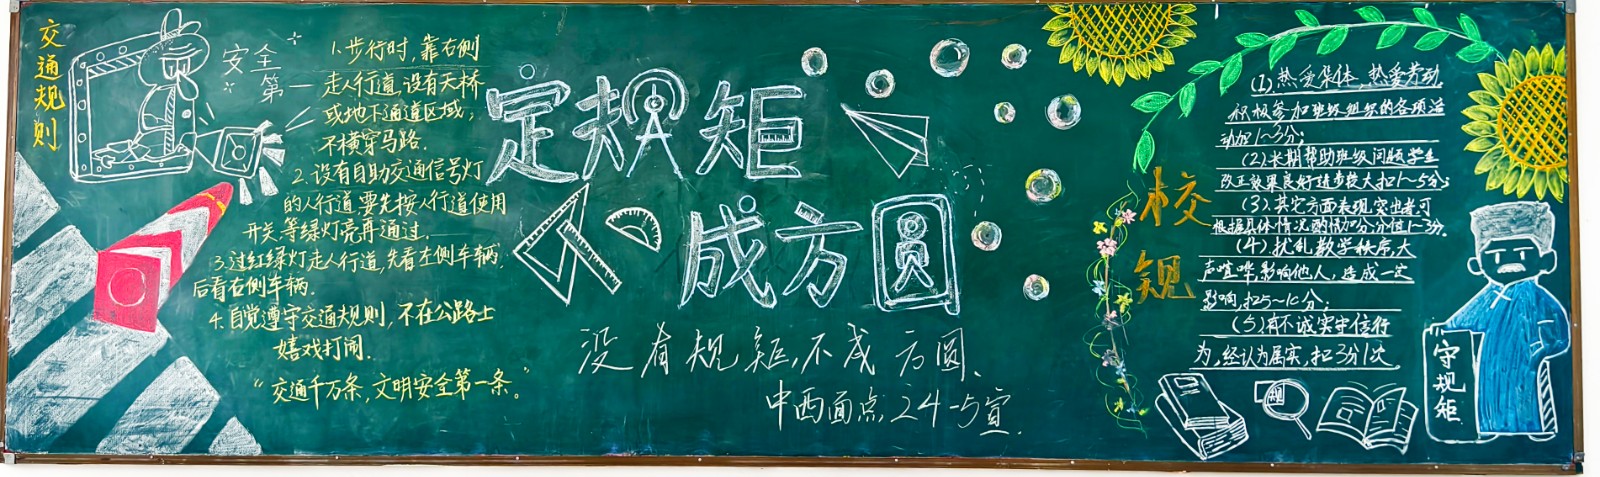 交通规则
安全
第一
1.步行时,靠右侧
走人行道,没有天桥
或地下通道区域,
不横穿马路.
2.没有自助交通信号灯
的人行道,要先按人行道使用
开关,等绿灯亮再通过.
3.过红绿灯走人行道,先看左侧车辆,
后看右侧车辆.
4.自觉遵守交通规则,不在公路上
嬉戏打闹.
“交通千万条,文明安全第一条。”
定规矩
不成方圆
没有规矩,不成方圆、
中西面点24-5宣.
校规
(1),热爱集体,热爱劳动,
积极参加班级组织的各项活
动加1~3分;
(2)长期帮助班级问题学生
改正效果良好进步较大扣1~5分;
(3).其它方面表现突出者可
根据具体情况酌情加分分值1-3分.
(4).扰乱教学秩序,大
声喧哗,影响他人,造成一定
影响,扣5~10分;
(5)有不诚实守信行
为,经认为属实,扣3分1次
规
守规矩